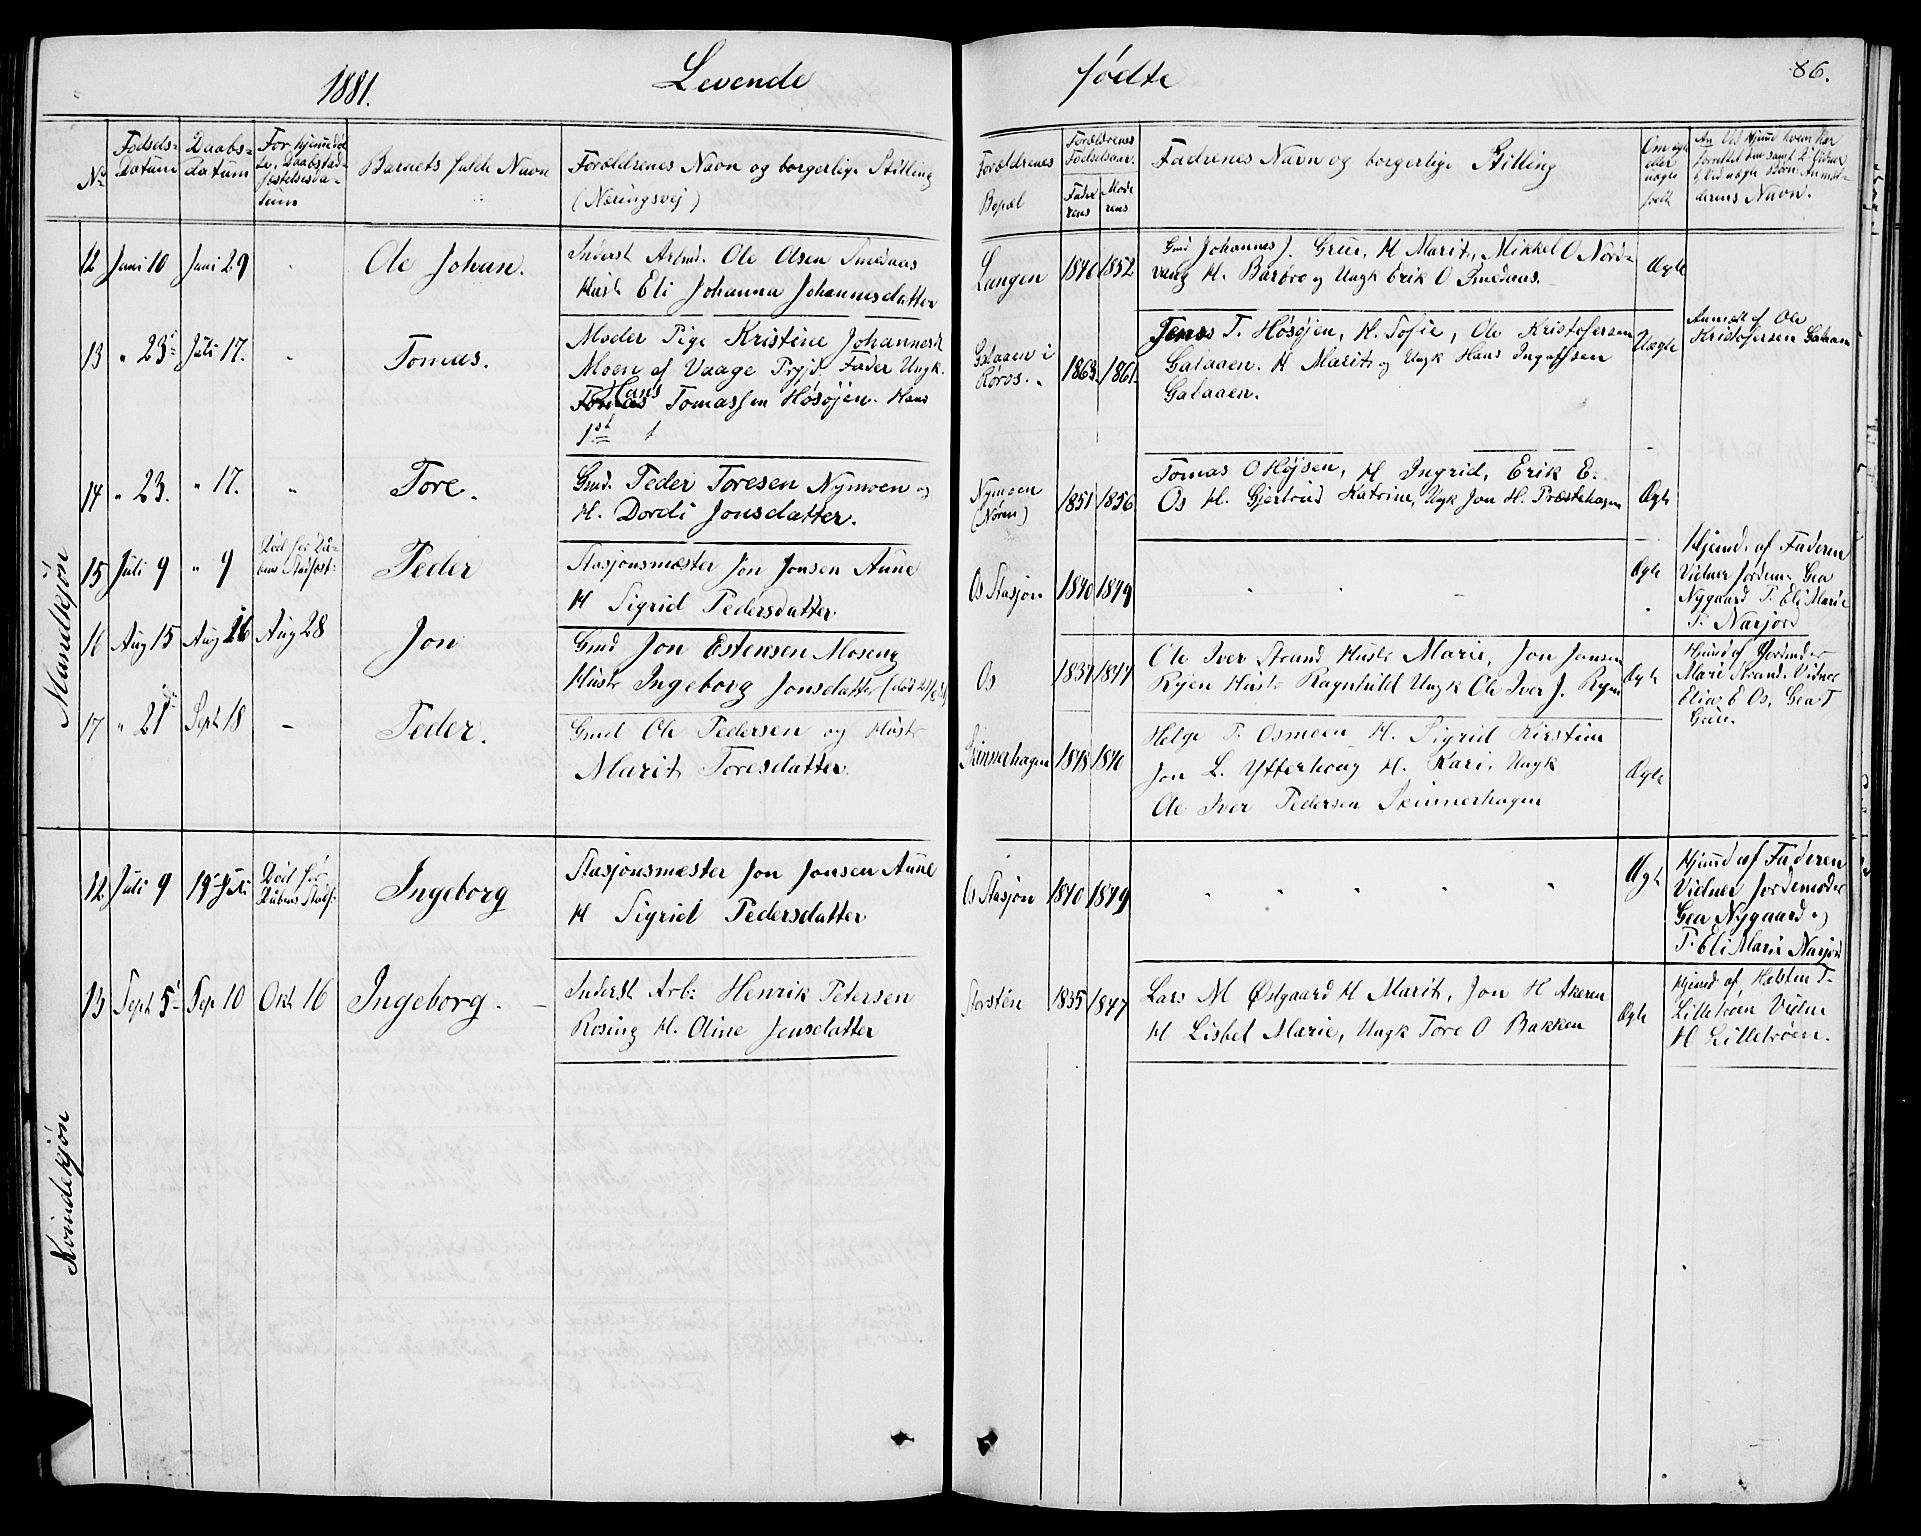 1881.
Levende
fødte
86.
No
Fødsels-
Datum
Daabs-
datum
Barnets fulde Navn
Forældrenes Navn og borgerlige Stilling
(Næringsvej)
Forældrenes
Bopæl
Forældrenes
Fødselsaar.
Fade
rens
Mode
rens
Fadrenes Navn og borgerlige Stilling
Om ægte
eller
uægte
født
derens Navn.
Mandkjøn
12 Juni 10 Juni 29 Ole Johan.
Inderst Arbmd. Ole Olsen Smedaas
Hust Eli Johanna Johannesdatter
Langen 1846 1852
Gmd Johannes J. Grue, H Marit, Mikkel O Nord-
vang H. Barbro og Ungk Erik O Smedaas.
Ægte
13 " 23 Juli 17. Tomas.
Moder Pige Kristine Johannesd
Moen af Vaage Prgjd. Fader Ungk.
Hans
Tomassen Høsøjen. Hans
1st
Galaaen i
Røros. 1863. 1861.
Jens T. Høsøjen, H. Sofie, Ole Kristofersen
Galaaen. H Marit og Ungk Hans Ingolfsen
Galaaen.
Uægte
Anmeldt af Ole
Kristofersen Galaaen
14 " 23. " 17. " Tore.
Gmd. Peder Toresen Nymoen og
H. Dordi Jonsdatter.
Nymoen
(Noren) 1851 1856
Tomas O Højsen, H Ingrid, Erik E.
Os H. Gjertrud Katrine, Ungk Jon H. Præstehagen
Ægte
15 Juli 9 " 9 Død før Daa-
Peder
Stasjonsmester Jon Jonsen Aune
H Sigrid Pedersdatter.
Os Stasjon 1840 1849
Ægte
Hjemd. af Faderen
Vidner Jordem. Gea
Nygaard P. Eli Marie
Narjord
16 Aug 15 Aug 16 Aug 28 Jon
Gmd Jon Estensen Moseng
Hustr Ingeborg Jonsdatter
Os 1837 1844
Ole Iver Strand Hustr Marie, Jon Jonsen
Ryen Hustr Ragnhild Ungk Ole Iver J. Ryen
Ægte
Hjemd af Jordmder
Mari Strand. Vidner
Elias E Os, Gea T
Grue.
17 " 21 Sept 18 – Peder.
Gmd Ole Pedersen og Hustr
Marit Toresdatter.
Skinnerhagen 1848 1840
Helge P. Osmoen H. Sigrid Kirstine
Jon L. Ytterhoug H. Kari, Ungk
Ole Iver Pedersen Skinnerhagen
Ægte
Kvindekjøn
12 Juli 9 19 Juli Død før
Ingeborg
Stasjonsmester Jon Jonsen Aune
H Sigrid Pedersdatter
Os Stasjon 1840 1849
Ægt
Hjemd af Faderen
Vidner Jordemoder
Gea Nygaard og
P. Eli Marie Narjord
13 Sept 5 Sep 10 Okt 16 Ingeborg. –
Inderst Arb: Henrik Petersen
Rosing H. Oline Jensdatter
Storstén 1835 1847
Lars M Østgaard H Marit, Jon H Akeren
H Lisbet Marie, Ungk Tore O Bakken
Ægte
Hjemd af Halsten T.
Lilletrøen Vidne
H Lilletrøen.